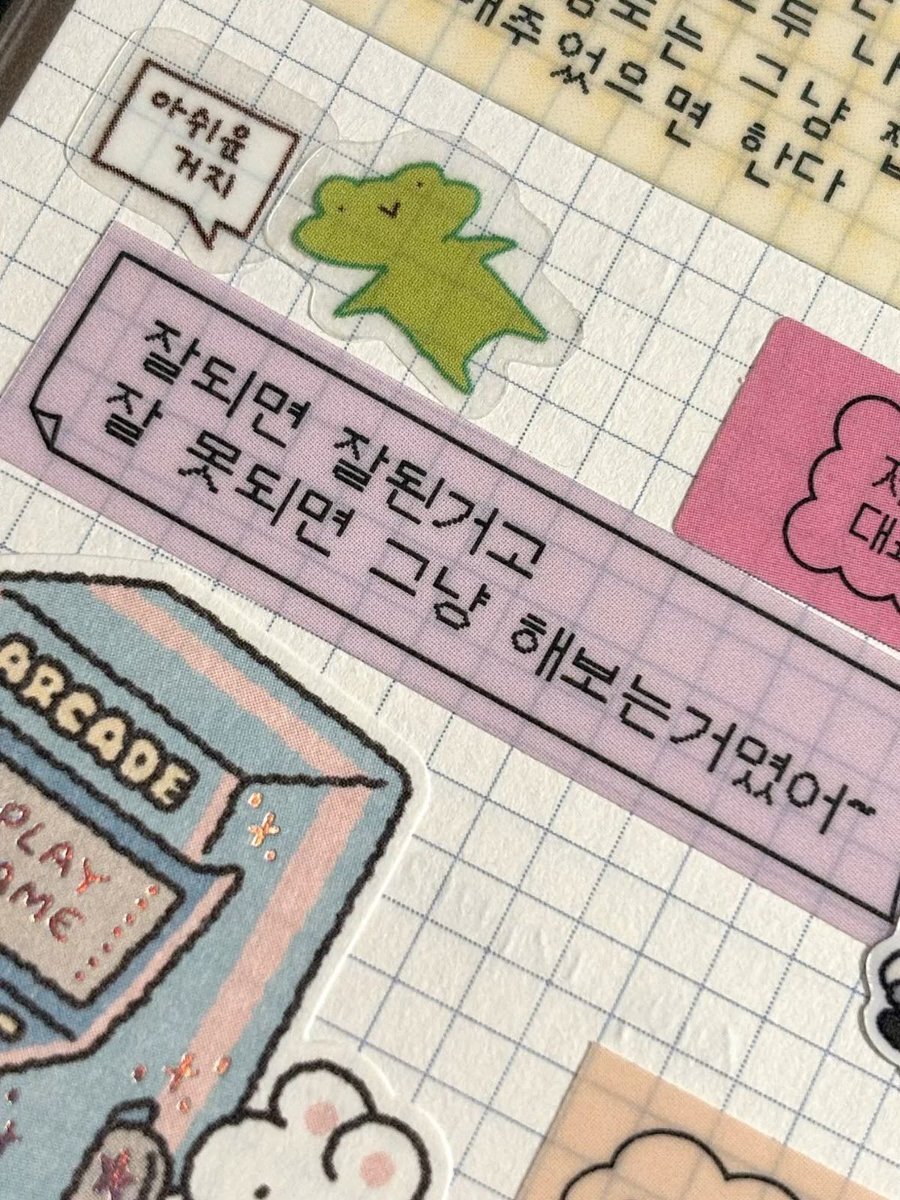 그냥
주었으면 한다
아쉬운
거지
잘되면 잘된거고
잘 못되면 그냥 해보는거였어~
ARCADE
PLAY